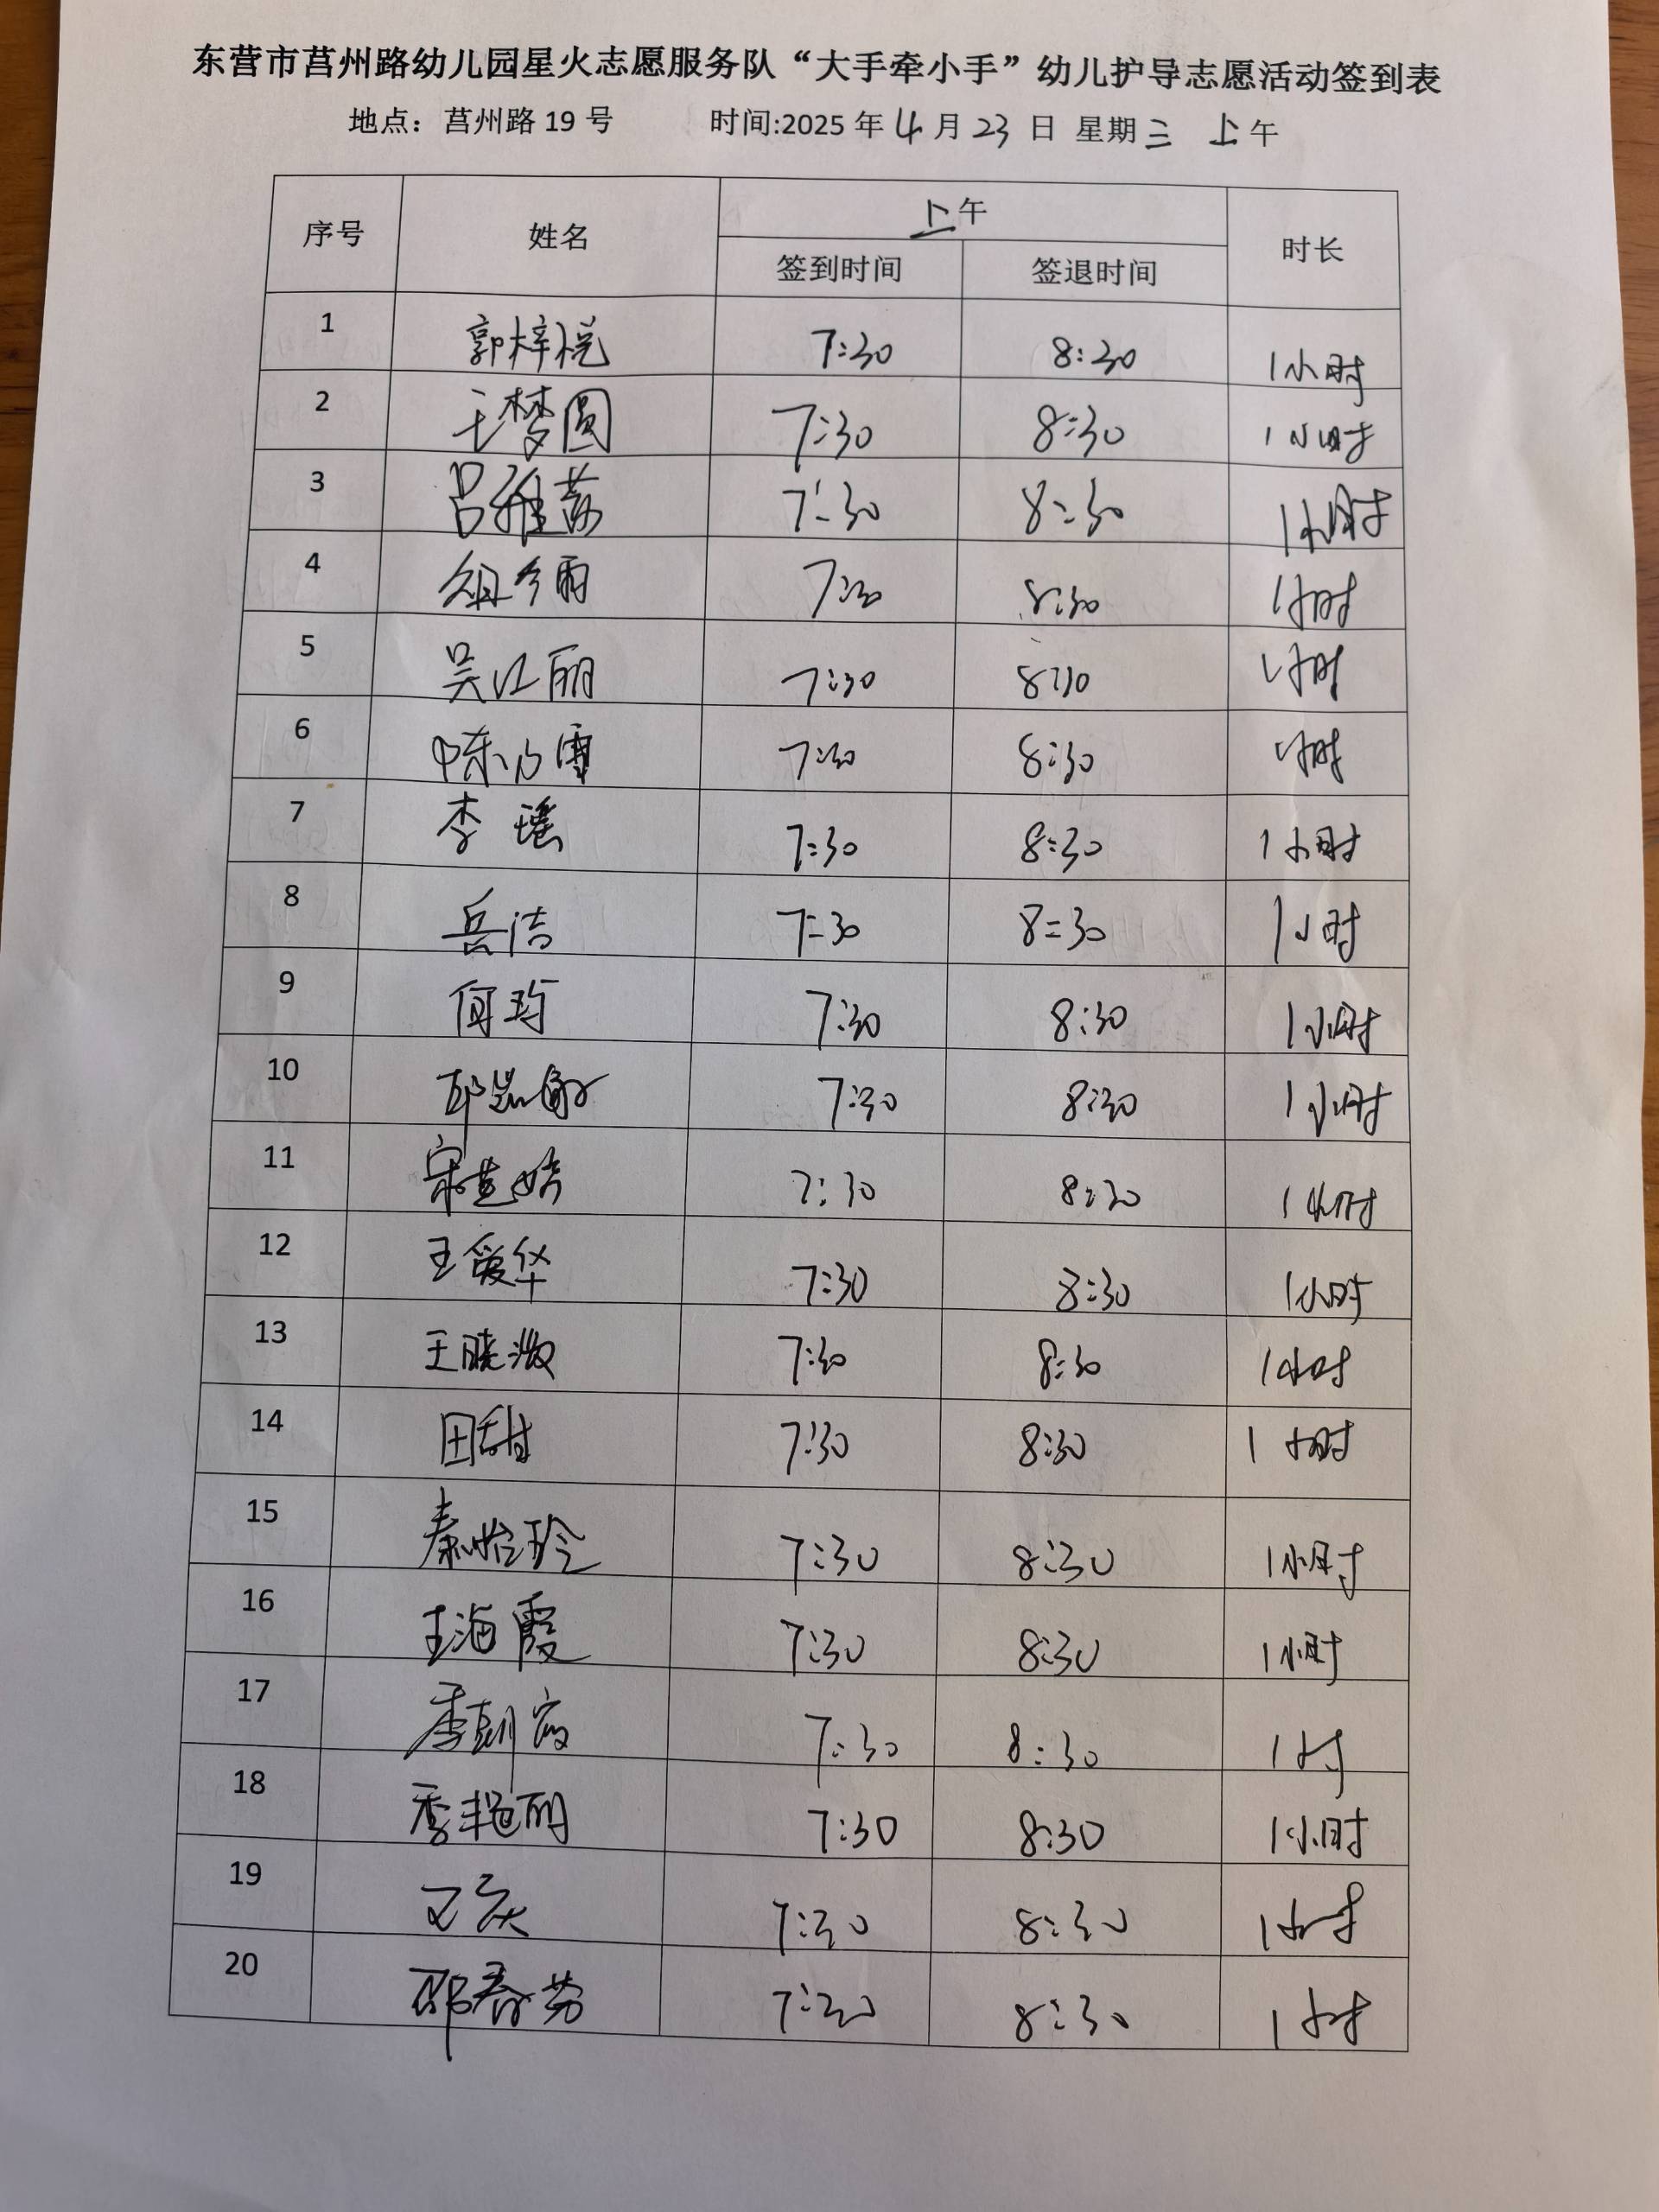 东营市莒州路幼儿园星火志愿服务队“大手牵小手”幼儿护导志愿活动签到表
地点：莒州路 19 号 时间:2025 年 4 月 23 日 星期三 上午
序号 姓名 上午 时长
签到时间 签退时间
1 郭梓悦 7:30 8:30 1小时
2 王梦圆 7:30 8:30 1小时
3 吕雅茹 7:30 8:30 1小时
4 7:30 8:30 1小时
5 吴江丽 7:30 8:30 1小时
6 陈乃雪 7:30 8:30 1小时
7 李瑶 7:30 8:30 1小时
8 岳洁 7:30 8:30 1小时
9 何珂 7:30 8:30 1小时
10 7:30 8:30 1小时
11 7:30 8:30 1小时
12 王爱华 7:30 8:30 1小时
13 王晓激 7:30 8:30 1小时
14 田甜 7:30 8:30 1小时
15 秦怡玲 7:30 8:30 1小时
16 王海霞 7:30 8:30 1小时
17 7:30 8:30 1小时
18 季艳丽 7:30 8:30 1小时
19 7:30 8:30 1小时
20 邵春芳 7:30 8:30 1小时